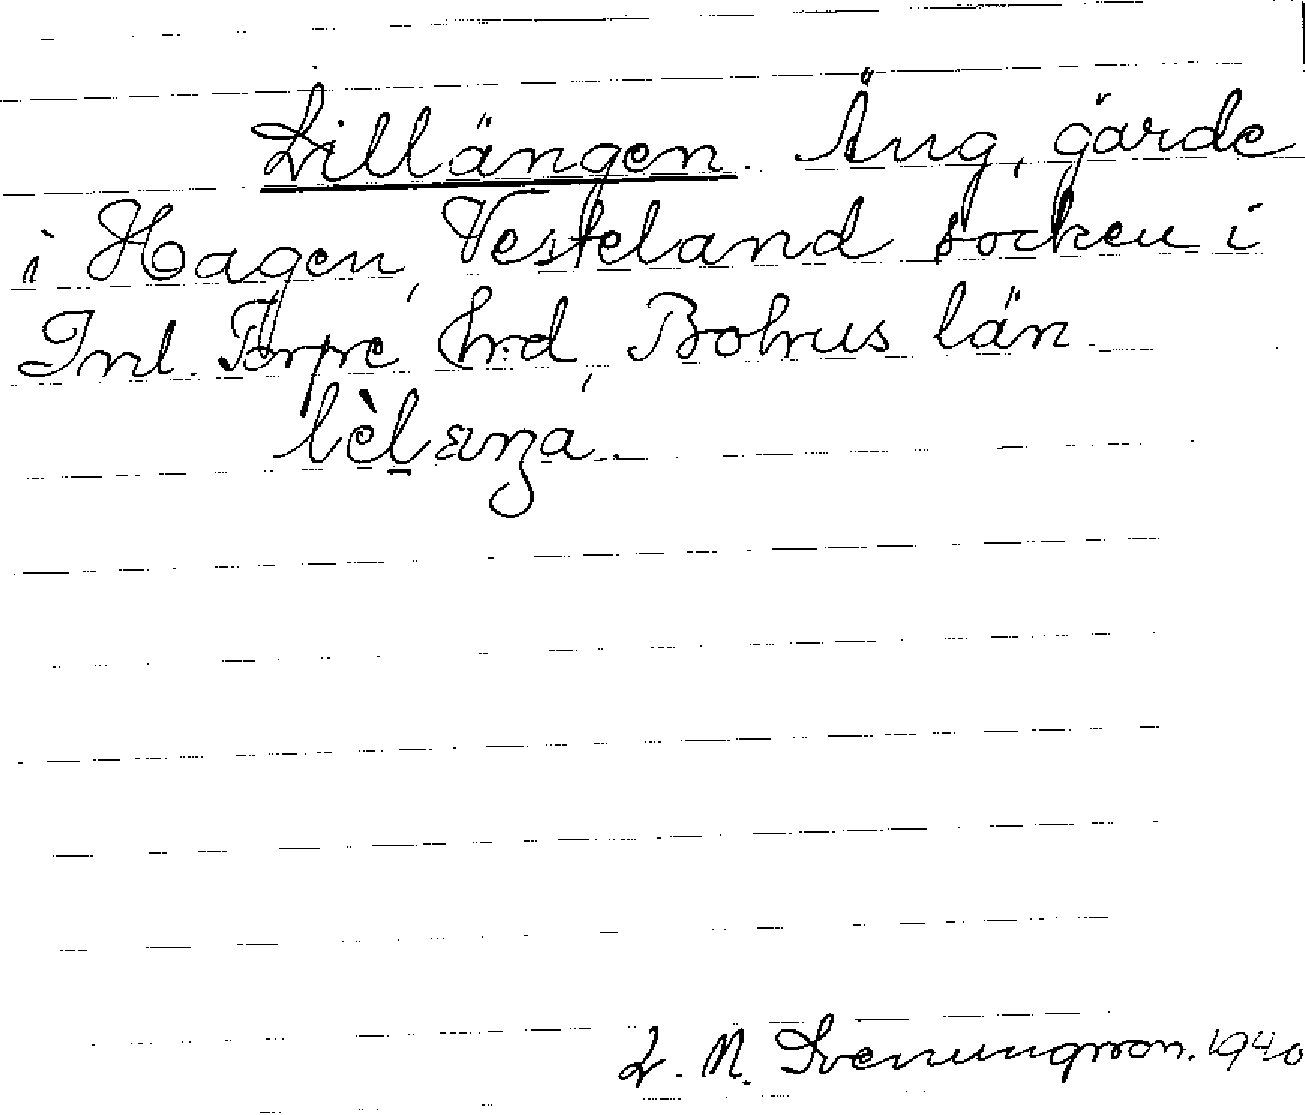 Lillängen. Äng, gärde
i Hagen, Vesteland socken i
Inl. Torpe hrd, Bohus län.
lèlæŋa.
L. N. Svenungsson. 1940